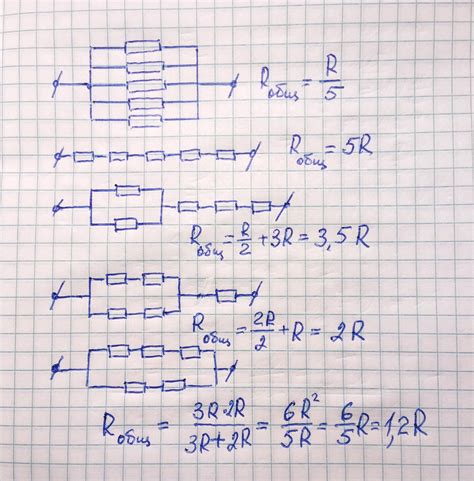 Rобщ = R/5
Rобщ = 5R
Rобщ = R/2 + 3R = 3,5R
Rобщ = 2R/2 + R = 2R
Rобщ = 3R·2R/3R+2R = 6R²/5R = 6/5R = 1,2R